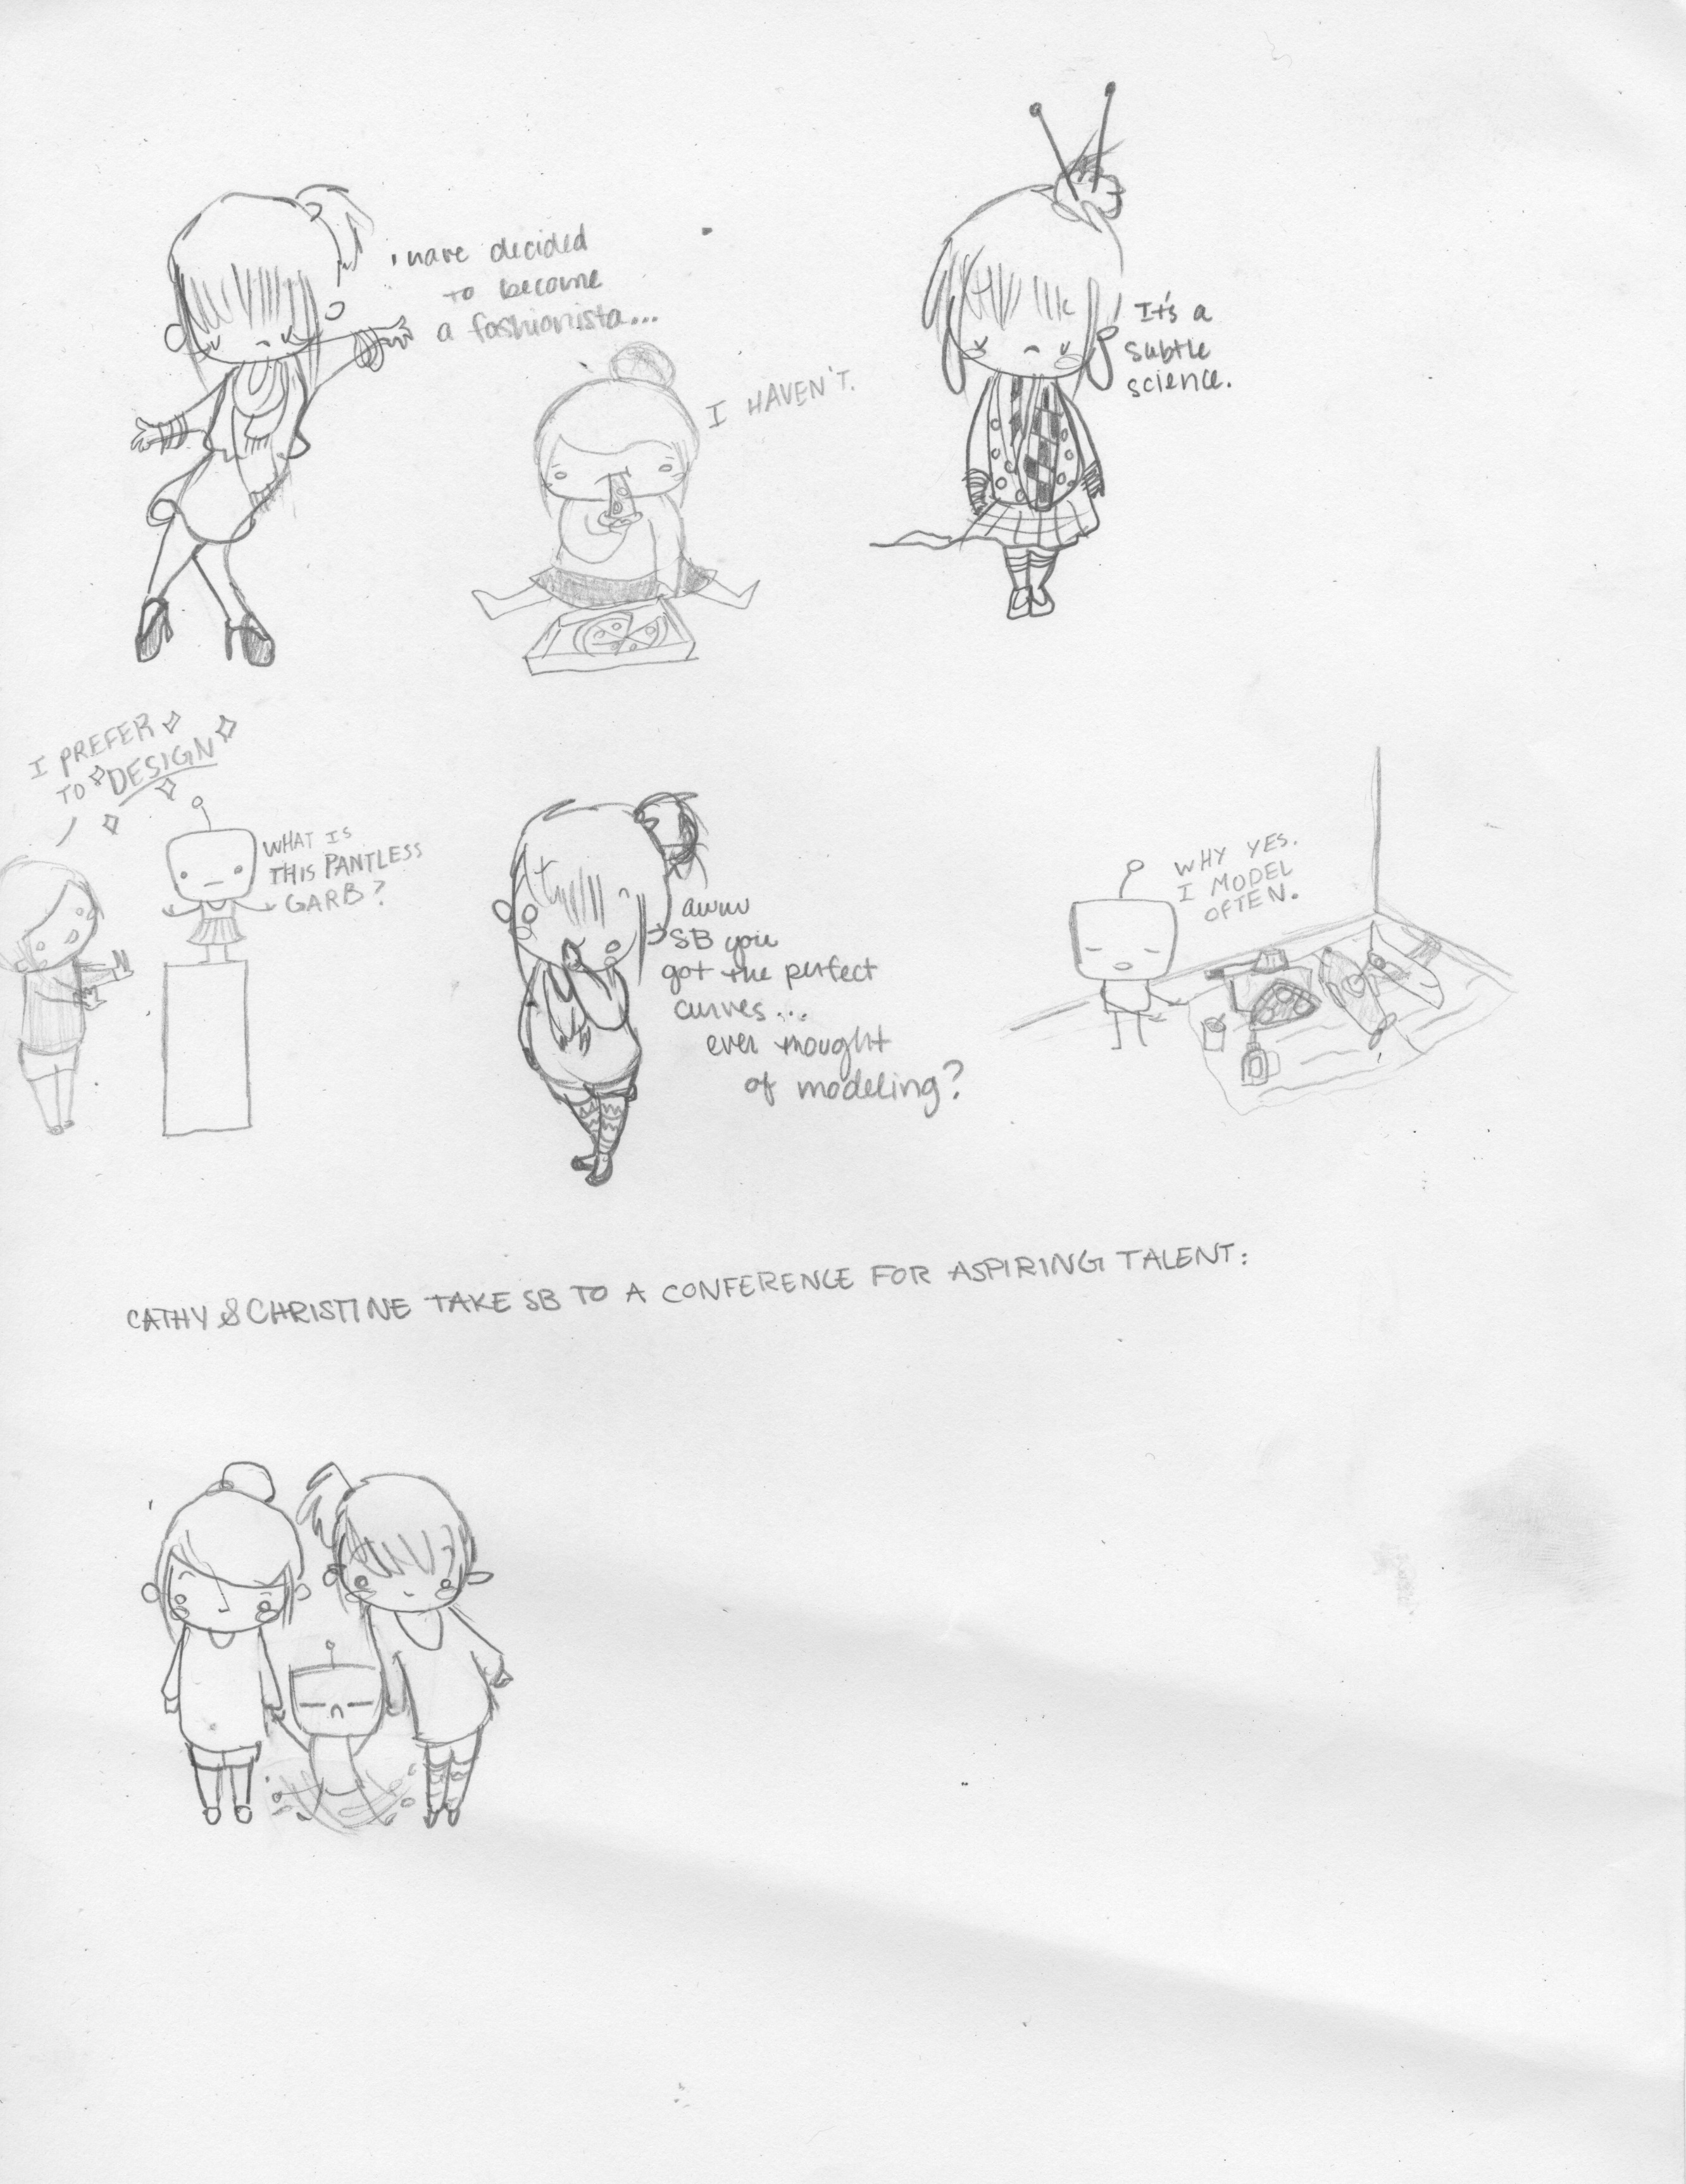 I have decided
to become
a fashionista...
I HAVEN'T.
It's a
subtle
science.
I PREFER
TO DESIGN
WHAT IS
THIS PANTLESS
GARB?
awww
SB you
got the perfect
curves...
ever thought
of modeling?
WHY YES.
I MODEL
OFTEN.
CATHY & CHRISTINE TAKE SB TO A CONFERENCE FOR ASPIRING TALENT: